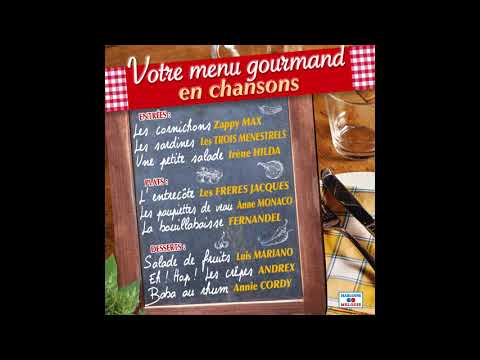 Votre menu gourmand
en chansons
ENTRÉES :
Les cornichons Zappy MAX
Les sardines Les TROIS MENESTRELS
Une petite salade Irène HILDA
PLATS :
L'entrecôte Les FRERES JACQUES
Les paupiettes de veau Anne MONACO
La bouillabaisse FERNANDEL
DESSERTS :
Salade de fruits Luis MARIANO
Eh ! Hap ! Les crêpes ANDREX
Baba au rhum Annie CORDY
MARIANNE
MELODIE